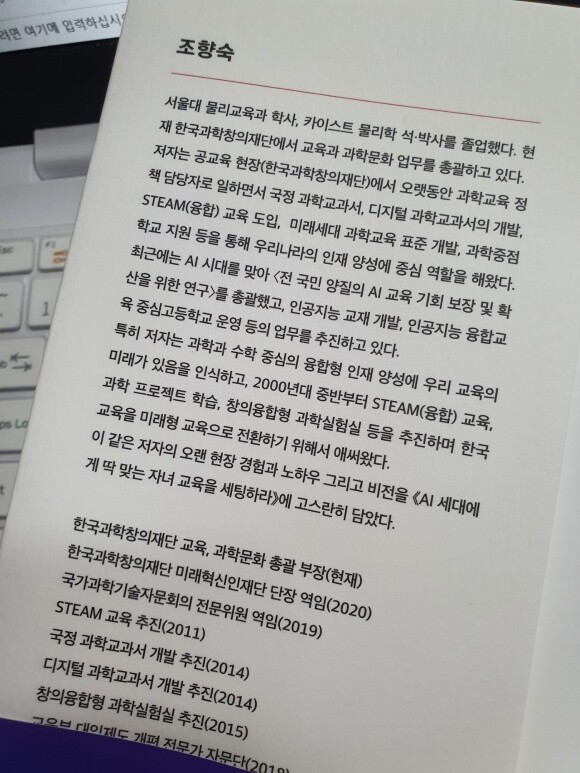 려면 여기에 입력하십시오
조향숙
서울대 물리교육과 학사, 카이스트 물리학 석·박사를 졸업했다. 현
재 한국과학창의재단에서 교육과 과학문화 업무를 총괄하고 있다.
저자는 공교육 현장(한국과학창의재단)에서 오랫동안 과학교육 정
책 담당자로 일하면서 국정 과학교과서, 디지털 과학교과서의 개발,
STEAM(융합) 교육 도입, 미래세대 과학교육 표준 개발, 과학중점
학교 지원 등을 통해 우리나라의 인재 양성에 중심 역할을 해왔다.
최근에는 AI 시대를 맞아 〈전 국민 양질의 AI 교육 기회 보장 및 확
산을 위한 연구〉를 총괄했고, 인공지능 교재 개발, 인공지능 융합교
육 중심고등학교 운영 등의 업무를 추진하고 있다.
특히 저자는 과학과 수학 중심의 융합형 인재 양성에 우리 교육의
미래가 있음을 인식하고, 2000년대 중반부터 STEAM(융합) 교육,
과학 프로젝트 학습, 창의융합형 과학실험실 등을 추진하며 한국
교육을 미래형 교육으로 전환하기 위해서 애써왔다.
이 같은 저자의 오랜 현장 경험과 노하우 그리고 비전을 《AI 세대에
게 딱 맞는 자녀 교육을 세팅하라》에 고스란히 담았다.
한국과학창의재단 교육, 과학문화 총괄 부장(현재)
한국과학창의재단 미래혁신인재단 단장 역임(2020)
국가과학기술자문회의 전문위원 역임(2019)
STEAM 교육 추진(2011)
국정 과학교과서 개발 추진(2014)
디지털 과학교과서 개발 추진(2014)
창의융합형 과학실험실 추진(2015)
교육부 대입제도 개편 전문가 자문단(2018)
Esc
F1
1